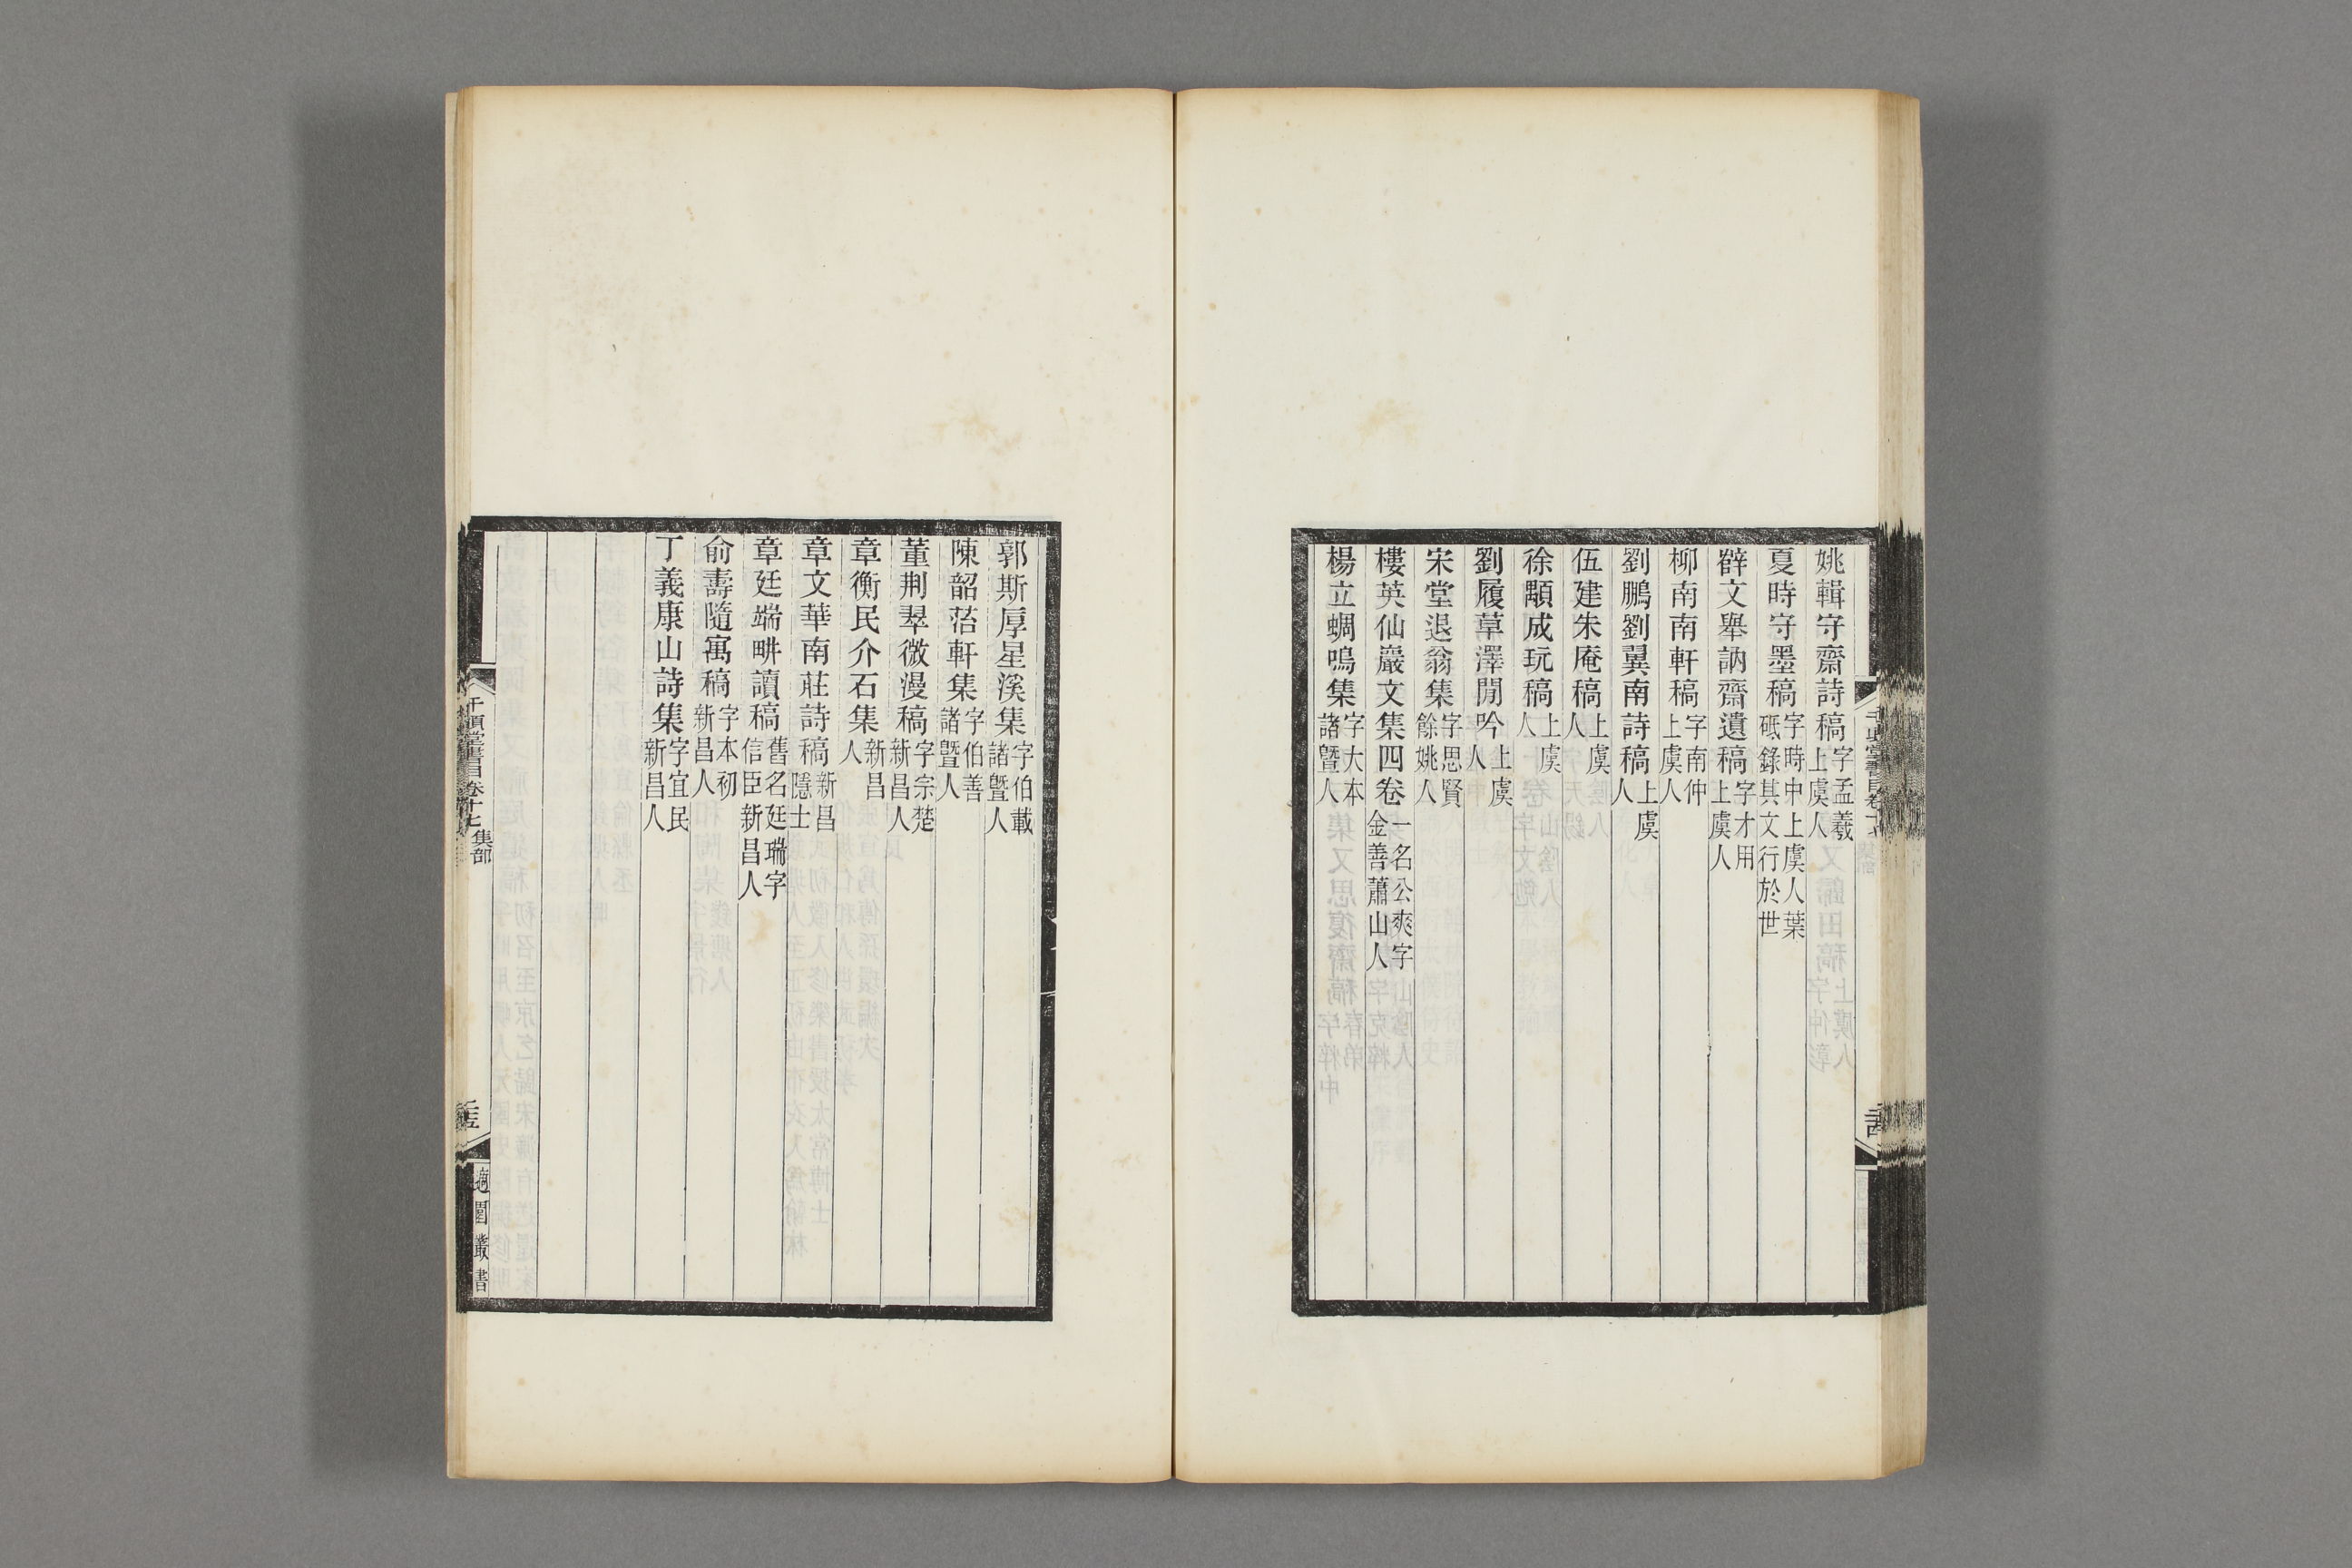 姚輯守齋詩稿字孟羲上虞人
夏時守墨稿字時中上虞人葉砥錄其文行於世
薛文舉訥齋遺稿字才用上虞人
柳南南軒稿字南仲上虞人
劉鵬劉翼南詩稿上虞人
伍建朱庵稿上虞人
徐顒成玩稿上虞人
劉履草澤閒吟上虞人
宋堂退翁集字思賢餘姚人
樓英仙巖文集四卷一名公爽字金善蕭山人
楊立蜩鳴集字大本諸曁人
郭斯厚星溪集字伯載諸曁人
陳韶菭軒集字伯善諸曁人
董荆翠微漫稿字宗楚新昌人
章衡民介石集新昌人
章文華南莊詩稿新昌隱士
章廷端畊讀稿舊名廷瑞字信臣新昌人
俞壽隨寓稿字本初新昌人
丁義康山詩集字宜民新昌人
千頃堂書目卷十七 集部
適園叢書